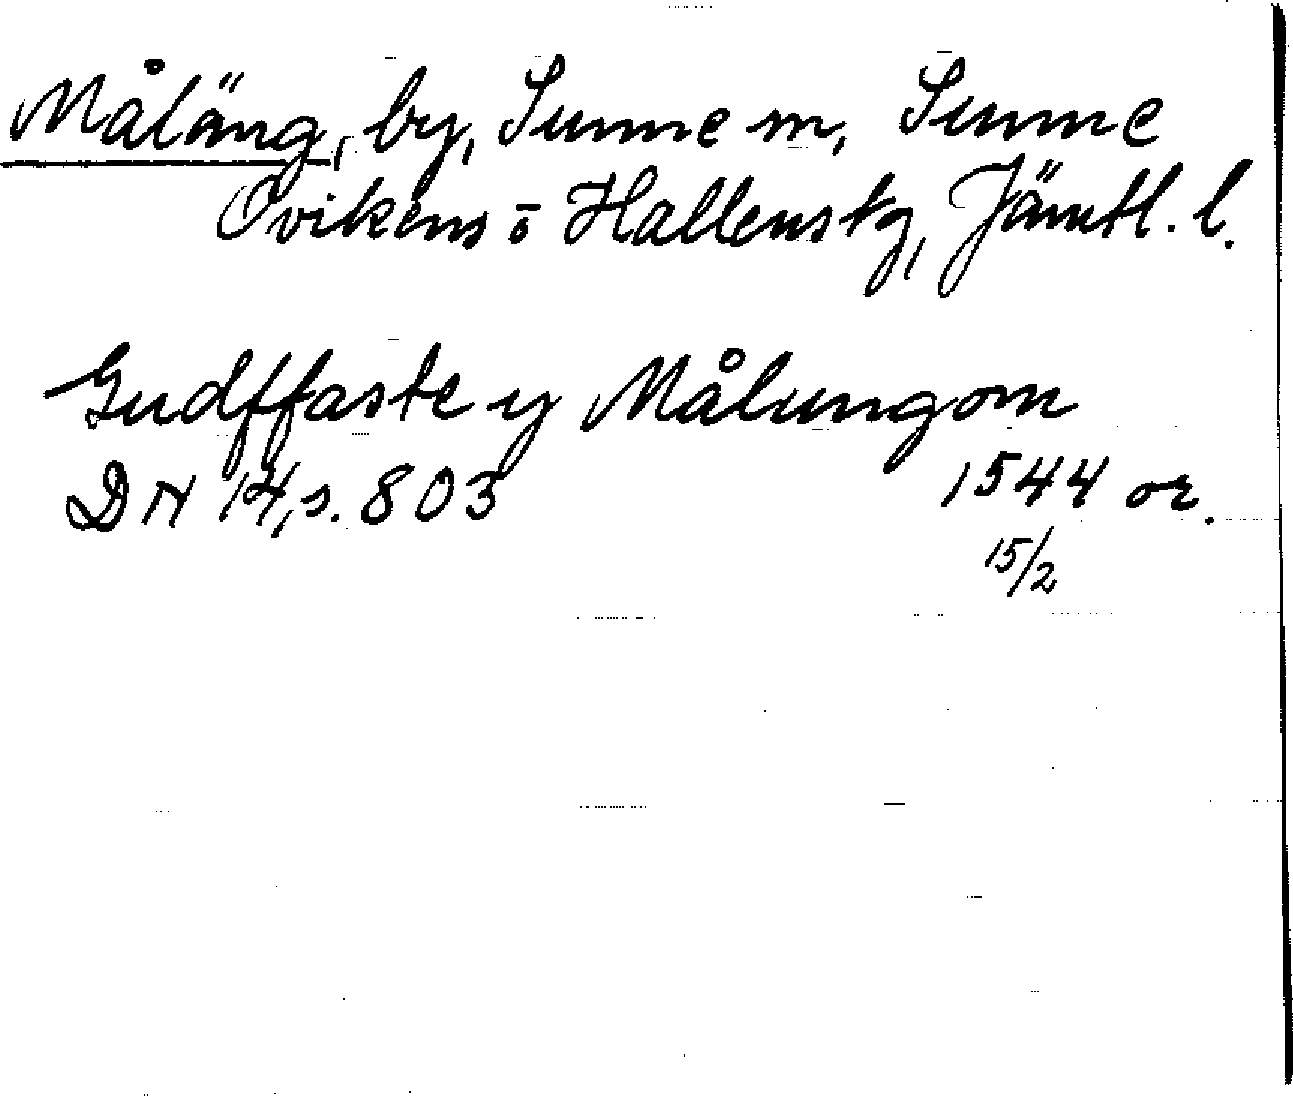 Måläng, by, Sunne m, Sunne
Ovikens o Hallens tg, Jämtl. l.
Gudffaste y Målungom
DN 14, s. 803 1544 or.
15/2